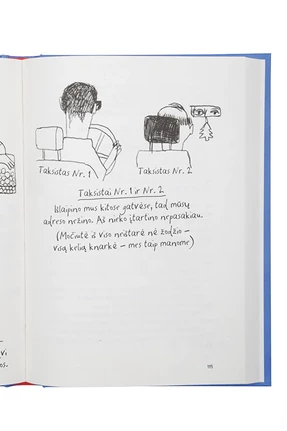 Taksistas Nr. 1
Taksistas Nr. 2
Taksistai Nr. 1 ir Nr. 2
Išlaipino mus kitose gatvėse, tad mūsų
adreso nežino. Aš nieko įtartino nepasakiau.
(Močiutė iš viso neištarė nė žodžio –
visą kelią knarkė – mes taip manome)